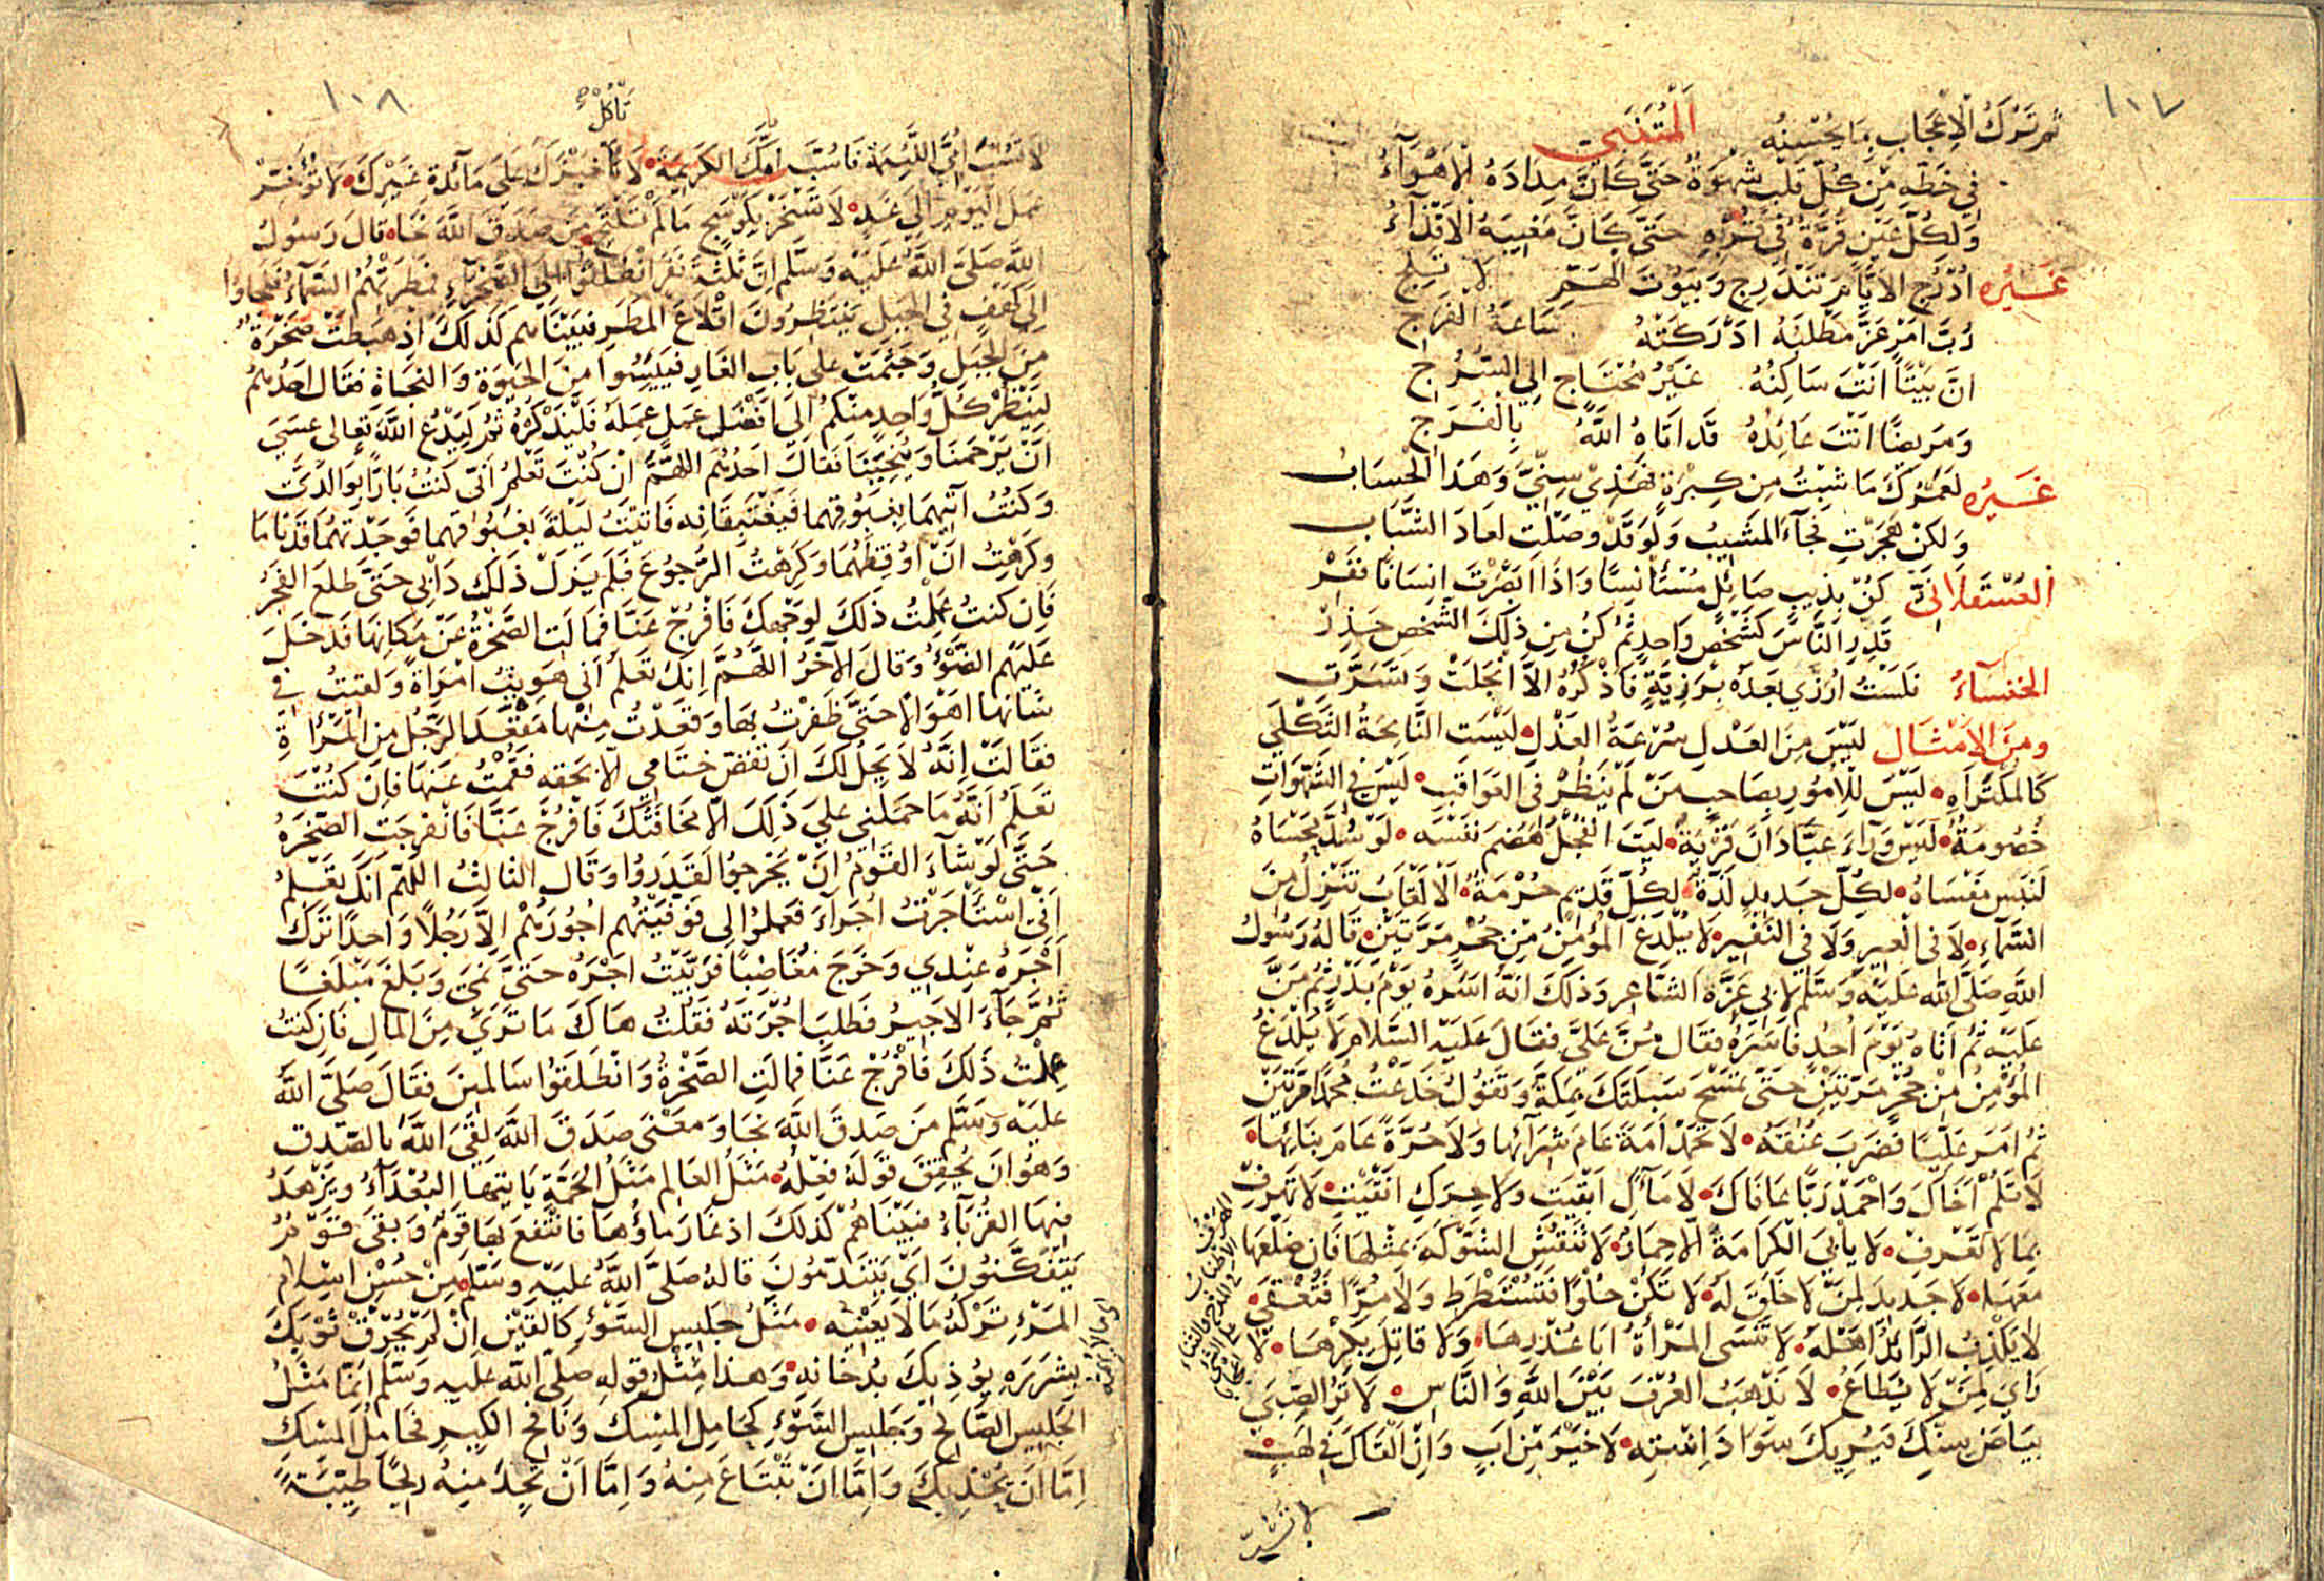 ١٠٧
ثم ترك الْاِعْجَابِ بِمَا يُحْسِنُه الْمُتَنَبِي
فِي خَطِّهِ مِنْ كُلِّ قَلْبٍ شَهْوَةٌ حَتَّى كَاَنَّ مِدَادَهُ الْاَهْوَآءُ
وَلِكُلِّ عَيْنٍ قُرَّةٌ فِي قُرْبِهِ حَتَّى كَاَنَّ مَغِيبَهُ الْاَقْذَآءُ
غَيْرُه اُدْرُجِ الْاَيَّامَ تَنْدَرِج وَبُيُوتَ الْهَمِّ لَا تَلِجِ
رُبَّ اَمْرٍ عَزَّ مَطْلَبُهُ اَدْرَكَتْهُ سَاعَةُ الْفَرَجِ
اِنَّ بَيْتًا اَنْتَ سَاكِنُهُ غَيْرُ مُحْتَاجٍ اِلَى السُّرُجِ
وَمَرِيضًا اَنْتَ عَائِدُهُ قَد اَتَاهُ اللَّهُ بِالْفَرَجِ
غَيْرُه لَعَمْرُكَ مَا شِبْتُ مِن كِبْرَةٍ فَهَذِي سِنِيَّ وَهَذَا الْحِسَابُ
وَلكِنْ هَجَرْتِ فَجَآءَ الْمَشِيبُ وَلَوْ قَدْ وَصَلْتِ لَعَادَ الشَّبَاب
الْعَسْقَلَانِيّ كُنْ بِذِيبٍ صَائِلٍ مُسْتَأنِسًا وَاِذَا اَبْصَرْتَ اِنْسَانًا فَفِرّ
قَدِّرِ النَّاسَ كَشَخْصٍ وَاحِدٍ ثُمَّ كُنْ مِن ذلِكَ الشَّخْصِ حَذِرْ
الخنسآءُ فَلَسْتُ اُرَزَّي بَعْدَهُ بِرَزِيَّةٍ فَاَذْكُرُهُ اِلَّا انْجَلَتْ وَتَسَرَّت
ومن الامثال لَيْسَ مِنَ الْعَدْلِ سُرْعَةُ الْعَذْلِ لَيْسَت النَّائِحَةُ الثَّكْلَي
كَالْمُكْتَرَاه لَيْسَ لِلْاُمُورِ بِصَاحِبٍ مَنْ لَمْ يَنْظُرْ فِي الْعَوَاقِبِ لَيْسَ فِي الشَّهَوَاتِ
خُصُومَةٌ لَيْسَ وَرَاءَ عَبَّادَانَ قَرْيَةٌ لَيْتَ الْفُجْلَ هَضَمَ نَفْسَه لَوْ سُدَّ مَحْسَاهُ
لَنَبَسَ مَفْسَاهُ لِكُلِّ جَدِيدٍ لَذَّةٌ لِكُلِّ قَدِيمٍ حُرْمَةٌ الْاَلْقَابُ تَنْزِلُ مِنَ
السَّمَاءِ لَا فِي الْعِيرِ وَلَا فِي النَّفِيرِ لَا يُلْدَغُ الْمُؤْمِنُ مِنْ جُحْرٍ مَرَّتَيْنِ قَالَهُ رَسُولُ
اللَّهِ صَلَّى اللَّه عَلَيْهِ وَسَلَّم لِاَبِي عَزَّةَ الشَّاعِرِ وَذلِكَ اَنَّهُ اَسَرَهُ يَوْمَ بَدْرٍ ثُمَّ مَنَّ
عَلَيْهِ ثُمَّ اَتَاهُ يَوْمَ اُحُدٍ فَاَسَرَهُ فَقَالَ مُنَّ عَلَيَّ فَقَالَ عَلَيْهِ السَّلَام لَا يُلْدَغُ
الْمُؤْمِنُ مِنْ جُحْرٍ مَرَّتَيْنِ حَتَّى تَمْسَحَ سَبَلَتَكَ بِمَكَّةَ وَتَقُولُ خَدَعْتُ مُحَمَّدًا مَرَّتَيْنِ
ثُمَّ اَمَرَ عَلِيًّا فَضَرَبَ عُنُقَهُ لَا تَحْمَدْ اَمَةً عَامَ شِرَآئِهَا وَلَا حُرَّةً عَامَ بِنَائِهَا
لَا تَلُمْ اَخَاكَ وَاحْمَدْ رَبًّا عَافَاكَ لَا مَآءَكِ اَبْقَيْتِ وَلَا حِرَكِ اَنْقَيْتِ لَا تَهْرِفْ
بِمَا لَا تَعْرِفْ لَا يَأْبَى الْكَرَامَةَ اِلَّا حِمَارٌ لَا تَنْقُشِ الشَّوْكَةَ بِمِثْلِهَا فَاِنَّ ضَلْعَهَا
مَعَهَا لَا جَدِيدَ لِمَنْ لَا خَلَقَ لَهُ لَا تَكُنْ حُلْوًا فَتُسْتَرَطَ وَلَا مُرًّا فَتُعْقَى
لَا يَكْذِبُ الرَّائِدُ اَهْلَهُ لَا تَنْسَى الْمَرْأَةُ اَبَا عُذْرِهَا وَلَا قَاتِلَ بِكْرِهَا لَا
رَايَ لِمَنْ لَا يُطَاعُ لَا يَذْهَبُ الْعُرْفُ بَيْنَ اللَّهِ وَالنَّاسِ لَا تُرِ الصَّبِيَّ
بَيَاضَ سِنِّكَ فَيُرِيكَ سَوَادَ اِسْتِهِ لَا خَيْرَ مِنْ اَبٍ وَاِنْ اَلْقَاكَ فِي لَهَبٍ
١٠٨
تَأْكُلْ
لَا تَسُبَّ اُمِّيَ اللَّئِيمَةَ فَاَسُبَّ اُمَّكَ الْكَرِيمَةَ لَا خُبْزَكَ عَلَى مَآئِدَةِ غَيْرِكَ لَا تُؤَخِّرْ
عَمَلَ الْيَوْمِ اِلَى غَدٍ لَا تَسْخَرْ بِكَوْسَجٍ مَا لَمْ تَلْتَحِ مَنْ صَدَقَ اللَّهَ نَجَا قَالَ رَسُولُ
اللَّهِ صَلَّى اللَّهُ عَلَيْهِ وَسَلَّم اِنَّ ثَلٰثَةَ نَفَرٍ انْطَلَقُوا اِلَى الصَّحْرَاءِ فَمَطَرَتْهُمُ السَّمَآءُ فَلَجَاوُا
اِلَى كَهْفٍ فِي الْجَبَلِ يَنْتَظِرُونَ اِقْلَاعَ الْمَطَرِ فَبَيْنَا هُم كَذلِكَ اِذْ هَبَطَتْ صَخْرَةٌ
مِنَ الْجَبَلِ وَجَثَمَتْ عَلَى بَابِ الْغَارِ فَيَئِسُوا مِنَ الْحَيٰوةِ وَالنَّجَاةِ فَقَالَ اَحَدُهُمْ
لِيَنْظُرْ كُلُّ وَاحِدٍ مِنْكُمْ اِلَى اَفْضَلِ عَمَلٍ عَمِلَهُ فَلْيَذْكُرْهُ ثُمَّ لْيَدْعُ اللَّهَ تَعَالَى عَسَى
اَنْ يَرْحَمَنَا وَيُنْجِيَنَا فَقَالَ اَحَدُهُم اللّهُمَّ اِنْ كُنْتَ تَعْلَمُ اَنِّي كُنْتُ بَارًّا بِوَالِدَيَّ
وَكُنْتُ آتِيهِمَا بِغَبُوقِهِمَا فَيَغْتَبِقَانِه فَاَتَيْتُ لَيْلَةً بِغَبُوقِهِمَا فَوَجَدْتُهُمَا قَدْ نَامَا
وَكَرِهْتُ اَنْ اُوقِظَهُمَا وَكَرِهْتُ الرُّجُوعَ فَلَمْ يَزَلْ ذلِكَ دَاْبِي حَتَّى طَلَعَ الْفَجْرُ
فَاِن كُنتُ عَمِلْتُ ذلِكَ لِوَجْهِكَ فَافْرُجْ عَنَّا فَمَالَتِ الصَّخْرَةُ عَنْ مَكَانِهَا فَدَخَلَ
عَلَيْهِم الضَّوْءُ وَقَالَ الْآخَرُ اللَّهُمَّ اِنَّكَ تَعْلَمُ اَنِّي هَوِيتُ امْرَاَةً وَلَقِيتُ فِي
شَانِهَا اَهْوَالًا حَتَّى ظَفِرْتُ بِهَا وَقَعَدْتُ مِنْهَا مَقْعَدَ الرَّجُلِ مِنَ الْمَرْأَةِ
فَقَالَتْ اِنَّهُ لَا يَحِلُّ لَكَ اَنْ تَفُضَّ خِتَامِي اِلَّا بِحَقِّه فَقُمْتُ عَنْهَا فَاِنْ كُنْتَ
تَعْلَمُ اَنَّهُ مَا حَمَلَنِي عَلَى ذلِكَ اِلَّا مَخَافَتُكَ فَافْرُجْ عَنَّا فَانْفَرَجَتِ الصَّخْرَةُ
حَتَّى لَوْ شَآءَ الْقَوْمُ اَنْ يَخْرُجُوا لَقَدَرُوا وَقَالَ الثَّالِثُ اللَّهُمَّ اِنَّكَ تَعْلَمُ
اَنِّي اسْتَأْجَرْتُ اُجَرَاءَ فَعَمِلُوا لِي فَوَفَّيْتُهُم اُجُورَهُمْ اِلَّا رَجُلًا وَاحِدًا تَرَكَ
اَجْرَهُ عِنْدِي وَخَرَجَ مُغَاضِبًا فَرَبَّيْتُ اَجْرَهُ حَتَّى نَمَى وَبَلَغَ مَبْلَغًا
ثُمَّ جَآءَ الْاَجِيرُ فَطَلَبَ اُجْرَتَهُ فَقُلْتُ هَاكَ مَا تَرَى مِنَ الْمَالِ فَاِنْ كُنْتُ
عَمِلْتُ ذَلِكَ فَافْرُجْ عَنَّا فَمَالَتِ الصَّخْرَةُ وَانْطَلَقُوا سَالِمِينَ فَقَالَ صَلَّى اللَّهُ
عَلَيْهِ وَسَلَّم مَنْ صَدَقَ اللَّهَ نَجَا وَمَعْنَى صَدَقَ اللَّهَ لَقِيَ اللَّهَ بِالصِّدْقِ
وَهُوَ اَنْ يُحَقِّقَ قَوْلَهُ فِعْلُهُ مَثَلُ الْعَالِمِ مَثَلُ الْحَمَّةِ يَاْتِيهَا الْبُعَدَآءُ وَيَزْهَدُ
فِيهَا الْقُرَبَآءُ فَبَيْنَا هُمْ كَذلِكَ اِذْ غَارَ مَاؤُهَا فَانْتَفَعَ بِهَا قَوْمٌ وَبَقِيَ قَوْمٌ
يَتَفَكَّنُونَ اَيْ يَتَنَدَّمُونَ قَالَهُ صَلَّى اللَّهُ عَلَيْهِ وَسَلَّم مِنْ حُسْنِ اِسْلَامِ
الْمَرْءِ تَرْكُهُ مَا لَا يَعْنِيْهِ مَثَلُ جَلِيسِ السَّوْءِ كَالْقَيْنِ اِنْ لَمْ يُحْرِقْ ثَوْبَكَ
بِشَرَرِهِ يُؤذِيكَ بِدُخَانِهِ وَهَذَا مِثْلُ قَوْلِهِ صَلَّى اللَّه عَلَيْهِ وَسَلَّم اِنَّمَا مَثَلُ
الْجَلِيسِ الصَّالِحِ وَجَلِيسِ السَّوْءِ كَحَامِلِ الْمِسْكِ وَنَافِخِ الْكِيرِ فَحَامِلُ الْمِسْكِ
اِمَّا اَنْ يُحْذِيَكَ وَاِمَّا اَنْ تَبْتَاعَ مِنْهُ وَاِمَّا اَنْ تَجِدَ مِنْهُ رِيحًا طَيِّبَةً